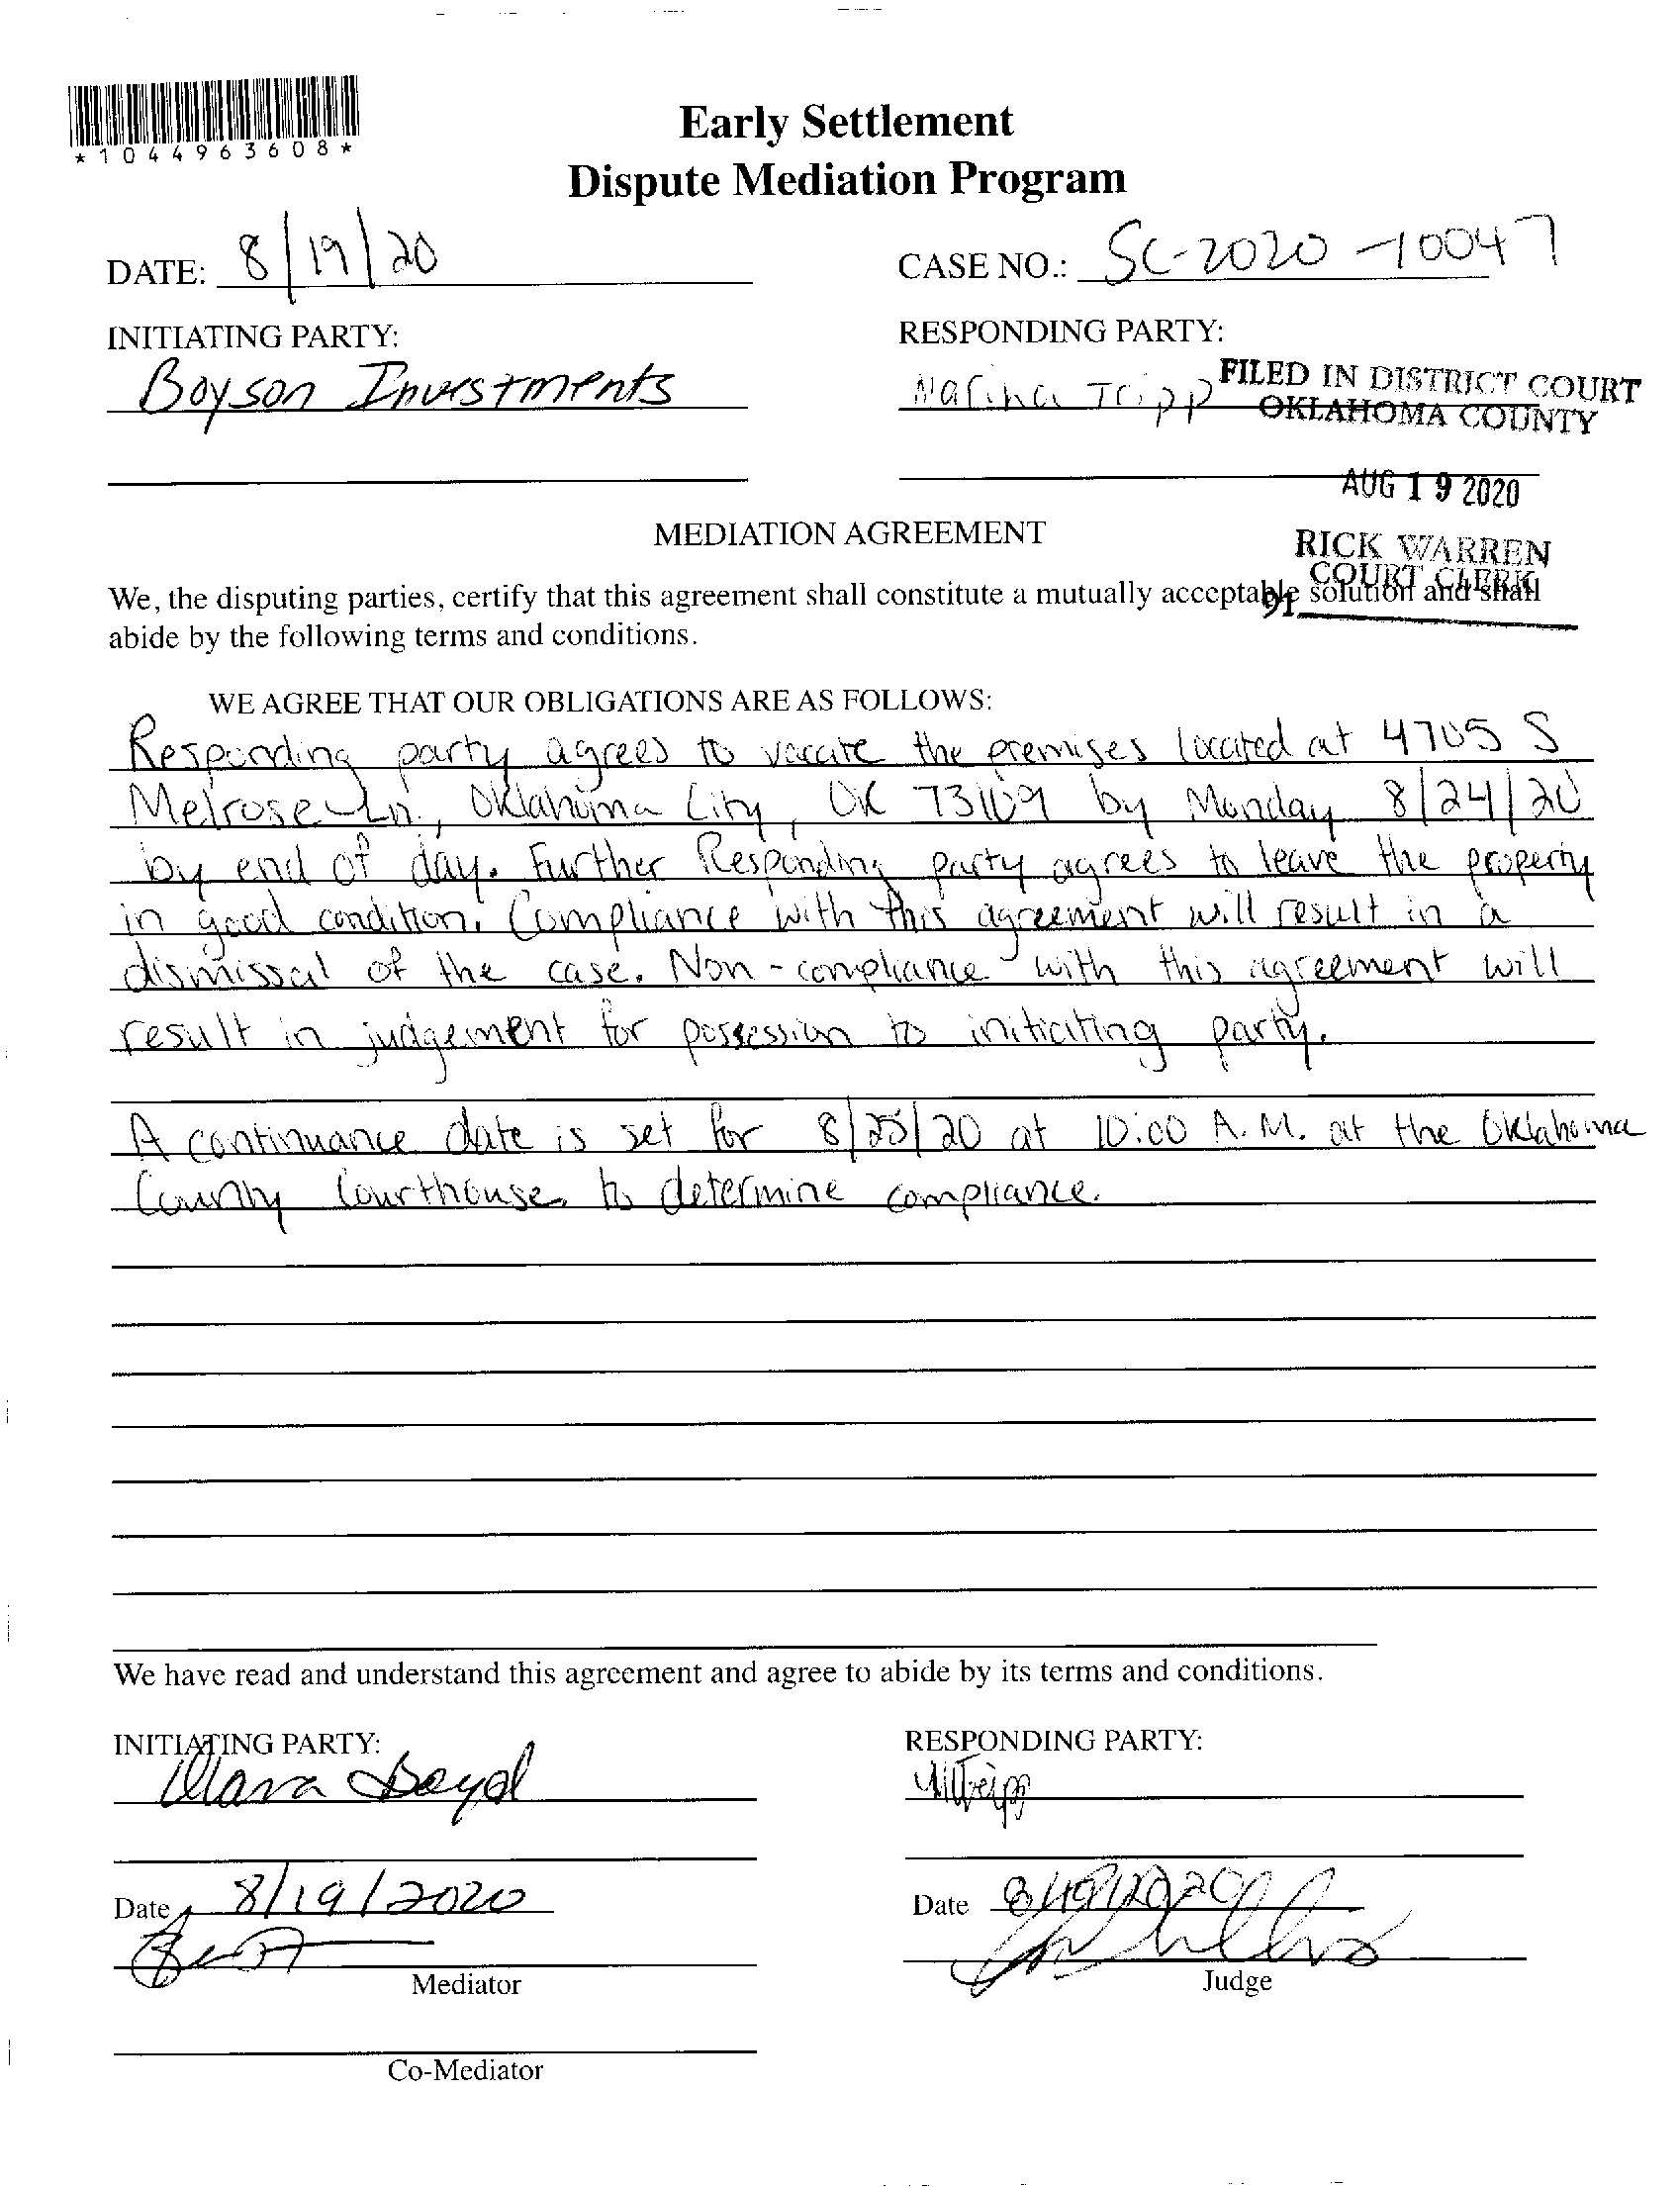 *1044963608*
Early Settlement
Dispute Mediation Program
DATE: 8/19/20
CASE NO.: SC-2020-10047
INITIATING PARTY:
RESPONDING PARTY:
Boyson Investments
Marina Tripp
FILED IN DISTRICT COURT
OKLAHOMA COUNTY
AUG 19 2020
RICK WARREN
COURT CLERK
91
MEDIATION AGREEMENT
We, the disputing parties, certify that this agreement shall constitute a mutually acceptable solution and shall
abide by the following terms and conditions.
WE AGREE THAT OUR OBLIGATIONS ARE AS FOLLOWS:
Responding party agrees to vacate the premises located at 4705 S
Melrose Ln., Oklahoma City, OK 73109 by Monday 8/24/20
by end of day. Further Responding party agrees to leave the property
in good condition. Compliance with this agreement will result in a
dismissal of the case. Non-compliance with this agreement will
result in judgement for possession to initiating party.
A continuance date is set for 8/25/20 at 10:00 A.M. at the Oklahoma
County Courthouse, to determine compliance.
We have read and understand this agreement and agree to abide by its terms and conditions.
INITIATING PARTY:
RESPONDING PARTY:
Boyd
Date 8/19/2020
Date 8/19/2020
Mediator
Judge
Co-Mediator